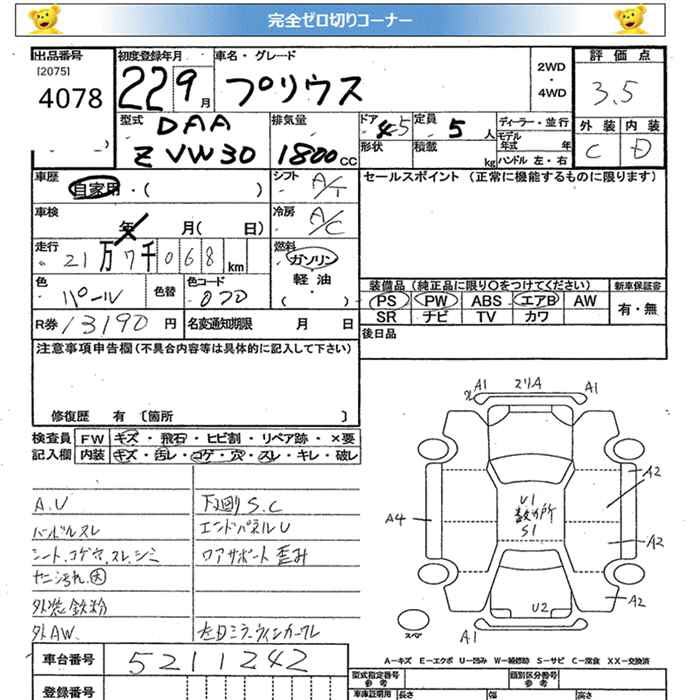 完全ゼロ切りコーナー
出品番号
[2075]
4078
初度登録年月
22 9月
車名・グレード
プリウス
2WD
・
4WD
評価点
3.5
外装 内装
C D
型式
DAA
ZVW30
排気量
1800cc
ドア 45
形状
定員 5人
積載 kg
ディーラー・並行
モデル
年式 年
ハンドル 左・右
車歴
自家用・( )
シフト A/T
セールスポイント (正常に機能するものに限ります)
車検
年 月( 日)
冷房 A/C
走行
21万7千068km
燃料
ガソリン
軽油
・( )
色
パール
色替
色コード
070
装備品 (純正品に限り○をつけてください)
新車保証書
PS PW ABS エアB AW
SR ナビ TV カワ
有・無
R券 13190円
名変通知期限 月 日
後日品
注意事項申告欄(不具合内容等は具体的に記入して下さい)
修復歴 有 [箇所 ]
検査員
記入欄
FW キズ・飛石・ヒビ割・リペア跡・×要
内装 キズ・汚レ・コゲ・穴・スレ・キレ・破レ
A.U
ハンドルスレ
シート、コゲ穴、スレ、シミ
ヤニ汚れ 因
外装鉄粉
外AW.
下廻り S.C
エンドパネルU
コアサポート歪み
左ドミラーウィンカーワレ
A1 A1
A2
A4
U1
S1
A2
U2 A2
A1
スペア
A-キズ E-エクボ U-凹み W-補修跡 S-サビ C-腐食 XX-交換済
車台番号
5211242
登録番号
型式指定番号
参考
類別区分番号
参考
車庫証明用
長さ 幅 高さ